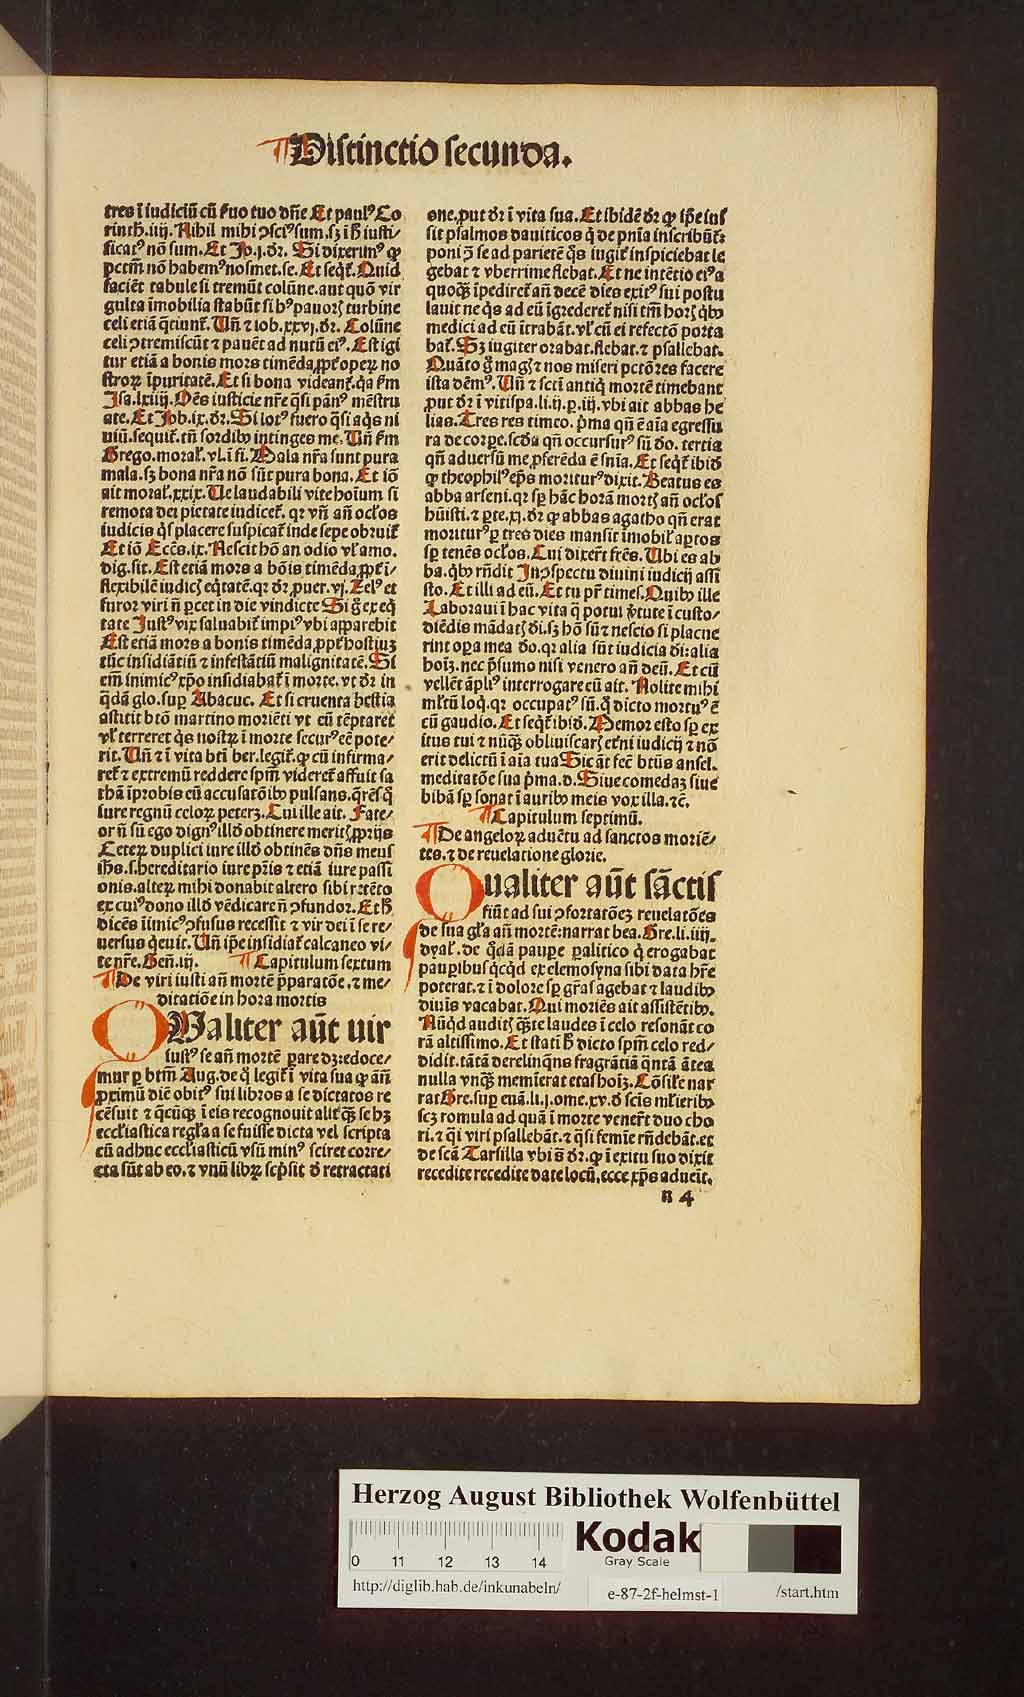 Distinctio secunda.
tres ĩ iudiciũ cũ ẜuo tuo dñe Et paulꝰ Co
rinth. iiij. Nihil mihi ↄsciꝰ sum. sꝫ ĩ ħ iusti⸗
ficatꝰ nõ sum. Et Jo. j. dr̃. Si dixerimꝰ ꝙ
pctm̃ nõ habemꝰ nosmet. se. Et seqt̃. Quid
faciẽt tabule si tremũt colũne. aut quõ vir
gulta ĩmobilia stabũt si hꝰ pauoꝝ turbine
celi etiã q̃tiunt̃. Uñ ⁊ iob. xxvj. dr̃. Colũne
celi ↄtremiscũt ⁊ pauẽt ad nutũ eiꝰ. Est igi
tur etiã a bonis mors timẽda, ꝓpt̃ opeꝝ no
stroꝝ ĩpuritatẽ. Et si bona videant̃. q̃a ẜm
Jsa. lxiiij. Oẽs iusticie nr̃e q̃si pãnꝰ mẽstru
ate. Et Job. ix. dr̃. Si lotꝰ fuero q̃si aq̃s ni
uiũ. sequit̃. tñ sordibꝰ intinges me. Uñ ẜm
Grego. moral̃. vl. ĩ fi. Mala nr̃a sunt pura
mala. sꝫ bona nr̃a nõ sũt pura bona. Et iõ
ait moral̃. xxix. Ue laudabili vite hoĩum si
remota dei pietate iudicet̃. qꝛ vñ añ ocl̃os
iudicis q̃s placere suspicat̃ inde sepe obruit̃
Et iõ Eccẽs. ix. Nescit hõ an odio vl̃ amo.
dig. sit. Est etiã mors a bõis timẽda, ꝓpt̃ ĩ⸗
flexibilẽ iudicꝭ eq̃tatẽ. qꝛ dr̃. ꝓuer. vj. Zelꝰ et
furor viri ñ ꝑcet in die vindicte Si g̃ ex eq̃
tate Justꝰ vix saluabit̃ impiꝰ vbi apparebit
Est etiã mors a bonis timẽda, ꝓpt̃ hostiuꝫ
tũc insidiãtiũ ⁊ infestãtiũ malignitatẽ. Si
em̃ inimicꝰ xp̃o insidiabat̃ ĩ morte. vt dr̃ in
q̃dã glo. suꝑ Abacuc. Et si cruenta bestia
astitit btõ martino moriẽti vt eũ tẽptaret
vl̃ terreret q̃s nostꝝ ĩ morte securꝰ eẽ pote⸗
rit. Uñ ⁊ ĩ vita bti ber. legit̃. ꝙ cũ infirma⸗
ret̃ ⁊ extremũ reddere spm̃ videret̃ affuit sa
thã ĩprobis eũ accusatõibꝰ pulsans. q̃rẽs q̃
iure regnũ celoꝝ peteret. Cui ille ait. Fate⸗
or ñ sũ ego dignꝰ illđ obtinere meritꝭ ꝓprijs
Ceteꝝ duplici iure illđ obtinẽs dñs meus
ihs̃. s. hereditario iure pr̃is ⁊ etiã iure passi
onis. alteꝝ mihi donabit altero sibi retẽto
ex cuiꝰ dono illđ vẽdicare ñ ↄfundor. Et ħ
dicẽs ĩimicꝰ ↄfusus recessit ⁊ vir dei ĩ se re⸗
uersus q̃euit. Uñ ip̃e insidiat̃ calcaneo vi⸗
te nr̃e. Geñ. iij.    Capitulum sextum
De viri iusti añ mortẽ p̃paratõe. ⁊ me⸗
ditatiõe in hora mortis
QUaliter aũt uir
iustꝰ se añ mortẽ ꝑare dꝫ: edoce⸗
mur ꝑ btm̃ Aug. de q̃ legit̃ ĩ vita sua ꝙ añ
ꝓximũ diẽ obitꝰ sui libros a se dictatos re
cẽsuit ⁊ q̃cũqꝫ ĩ eis recognouit alit̃ qꝫ se hꝫ
eccl̃iastica regl̃a a se fuisse dicta vel scripta
cũ adhuc eccl̃iasticũ vsũ minꝰ sciret corre⸗
cta sũt ab eo. ⁊ vnũ libꝝ scp̃sit đ retractati
one, ꝓut dr̃ ĩ vita sua. Et ibidẽ dr̃ ꝙ ip̃e ius
sit psalmos dauiticos q̃ de pnĩa inscribũt̃:
poni ↄ̃ se ad parietẽ q̃s iugit̃ inspiciebat le
gebat ⁊ vberrime flebat. Et ne intẽtio eiꝰ a
quoqꝫ ĩpediret̃ añ decẽ dies exitꝰ sui postu
lauit ne q̃s ad eũ ĩgrederet̃ nisi tm̃ horꝭ q̃bꝰ
medici ad eũ ĩtrabãt. vl̃ cũ ei refectõ porta
bat̃. Sꝫ iugiter orabat. flebat. ⁊ psallebat.
Quãto g̃ magꝭ ⁊ nos miseri pctõres facere
ista dẽmꝰ. Uñ ⁊ scti antiq̃ mortẽ timebant
ꝓut dr̃ ĩ vitispa. li. ij. p. iij. vbi ait abbas he
lias. Tres res timeo. p̃ma qñ ẽ aĩa egressu
ra de corꝑe. scđa qñ occursurꝰ sũ đo. tertia
qñ aduersũ me, ꝓferẽda ẽ snĩa. Et seqt̃ ibiđ
ꝙ theophilꝰ ep̃s moriturꝰ dixit. Beatus es
abba arseni. qꝛ sꝑ hãc horã mortꝭ añ ocl̃os
hũisti. ⁊ ꝑte. xj. dr̃ ꝙ abbas agatho qñ erat
moriturꝰ ꝑ tres dies mansit ĩmobil̃ aptos
sꝑ tenẽs ocl̃os. Cui dixer̃t fr̃es. Ubi es ab
ba. q̃bꝰ rñdit Jnↄspectu diuini iudicij assi
sto. Et illi ad eũ. Et tu pr̃ times. Quibꝰ ille
Laboraui ĩ hac vita q̃ potui ṽtute ĩ custo⸗
diẽdis mãdatꝭ đi. sꝫ hõ sũ ⁊ nescio si placue
rint oꝑa mea đo. qꝛ alia sũt iudicia đi: alia
hoĩꝫ. nec p̃sumo nisi venero añ deũ. Et cũ
vellẽt ãpliꝰ interrogare eũ ait. Nolite mihi
ml̃tũ loq̃. qꝛ occupatꝰ sũ. q̃ dicto mortuꝰ ẽ
cũ gaudio. Et seqt̃ ibiđ. Memor esto sꝑ ex
itus tui ⁊ nũqꝫ obliuiscarꝭ et̃ni iudicij ⁊ nõ
erit delictũ ĩ aĩa tua Sic ãt fec̃ btũs ansel.
meditatõe sua p̃ma. đ. Siue comedaꝫ siue
bibã sꝑ sonat ĩ auribꝰ meis vox illa. ⁊c̃.
Capitulum septimũ.
De angeloꝝ aduẽtu ad sanctos moriẽ⸗
tes. ⁊ de reuelatione glorie.
Qualiter aũt sãctis
fiũt ad sui ↄfortatõeꝫ reuelatões
de sua gl̃a añ mortẽ: narrat bea. Gre. li. iiij.
dyal̃. de q̃dã pauꝑe ꝑalitico q̃ erogabat
pauꝑibus q̃cq̃d ex elemosyna sibi data hr̃e
poterat. ⁊ ĩ dolore sꝑ gr̃as agebat ⁊ laudibꝰ
diuĩs vacabat. Qui moriẽs ait assistẽtibꝰ.
Nũq̃d auditꝭ q̃te laudes ĩ celo resonãt co
rã altissimo. Et stati ħ dicto spm̃ celo red⸗
didit. tãtã derelinq̃ns fragrãtiã q̃ntã ãtea
nulla vnqꝫ meminerat etas hoĩꝫ. Cõsil̃e nar
rat Gre. suꝑ euã. li. j. ome. xv. đ scis ml̃ieribꝰ
scꝫ romula ad quã ĩ morte vener̃t duo cho
ri. ⁊ q̃si viri psallebãt. ⁊ q̃si femĩe rñdebãt. et
de scã Tarsilla vbi s̃ dr̃. ꝙ ĩ exitu suo dixit
recedite recedite date locũ, ecce xp̃s aduẽit.
n 4
Herzog August Bibliothek Wolfenbüttel
Kodak
Gray Scale
0 11 12 13 14
http://diglib.hab.de/inkunabeln/
e-87-2f-helmst-1
/start.htm